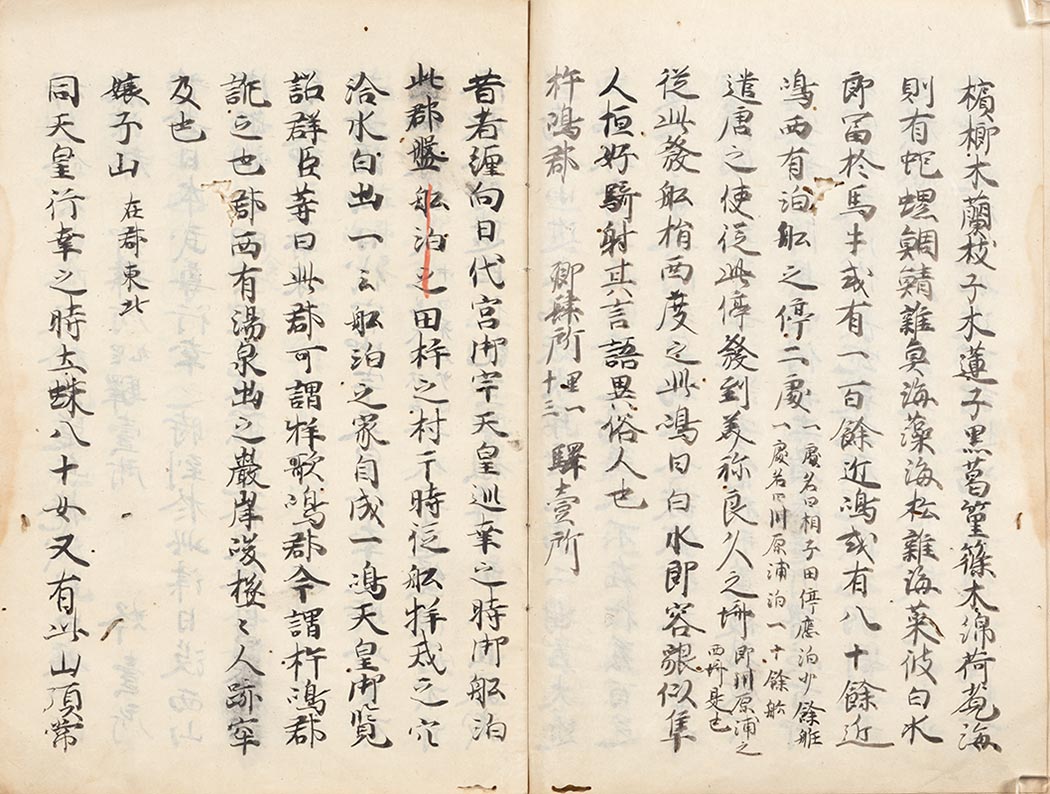 檳榔木蘭枝子木蓮子黒葛篁篠木綿荷莧海
則有蛇螺鯛鯖雜魚海藻海松雜海菜彼白水
郎冨於馬牛或有一百餘近嶋或有八十餘近
嶋西有泊舩之停二處 一處名曰相子田停應泊廿餘舩 一處名曰川原浦泊一十餘舩
遣唐之使従此停發到美祢良久之埼 即川原浦之西埼是也
従此發舩梢西度之此嶋白水郎容皃似隼
人恒好騎射其言語異俗人也
杵嶋郡 郷肆所 里一十三 驛壹所
昔者纏向日代宮御宇天皇巡幸之時御舩泊
此郡盤舩泊之田杵之村于時従舩牂戓之穴
冷水自出一云舩泊之家自成一嶋天皇御覧
詔群臣等曰此郡可謂牂歌嶋郡今謂杵嶋郡
訛之也郡西有湯泉出之巖岸峻極〻人跡罕
及也
嬢子山 在郡東北
同天皇行幸之時土蛛八十女又有此山頂常